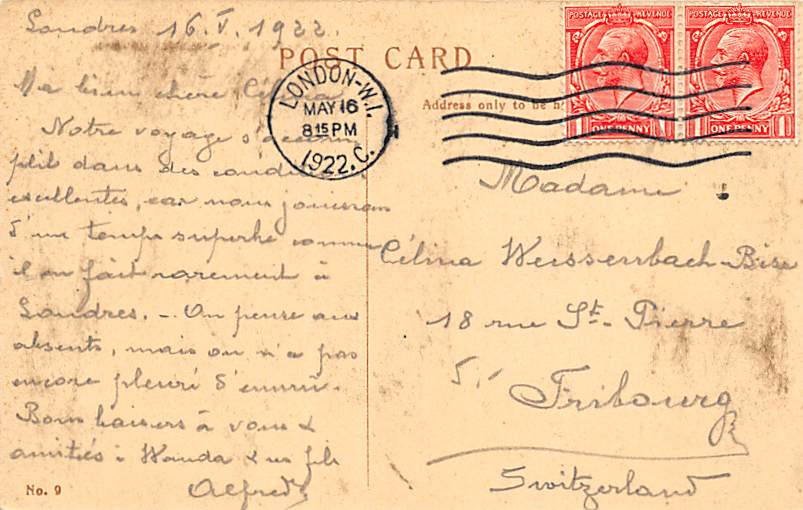 Londres 16.V.1922.
POST CARD
Ma bien chère Célina
LONDON-W.1.
MAY 16
8 15 PM
1922.C.
POSTAGE REVENUE
ONE PENNY
POSTAGE REVENUE
1 ONE PENNY 1
Address only to be
Notre voyage s'accom
plit dans des condi
excellentes, car nous jouissons
d'un temps superbe comme
il en fait rarement à
Londres. - On pense aux
absents, mais on n'a pas
encore pleuré d'ennui.
Bons baisers à vous &
amitiés à Wanda & fils
Alfred
Madame
Célina Weissenbach-Bise
18 rue St. Pierre
Fribourg
Switzerland
No. 9